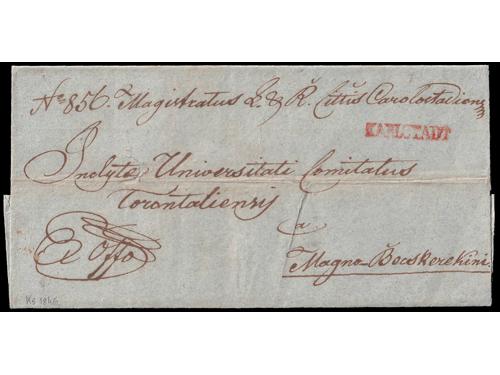 No 856. Magistratus L. & R. Cittis Carolostadiens
KARLSTADT
Inclytæ Universitati Comitatus
Torontaliensis
a
Ex Offo
Magno-Becskerekini
Ks 1846